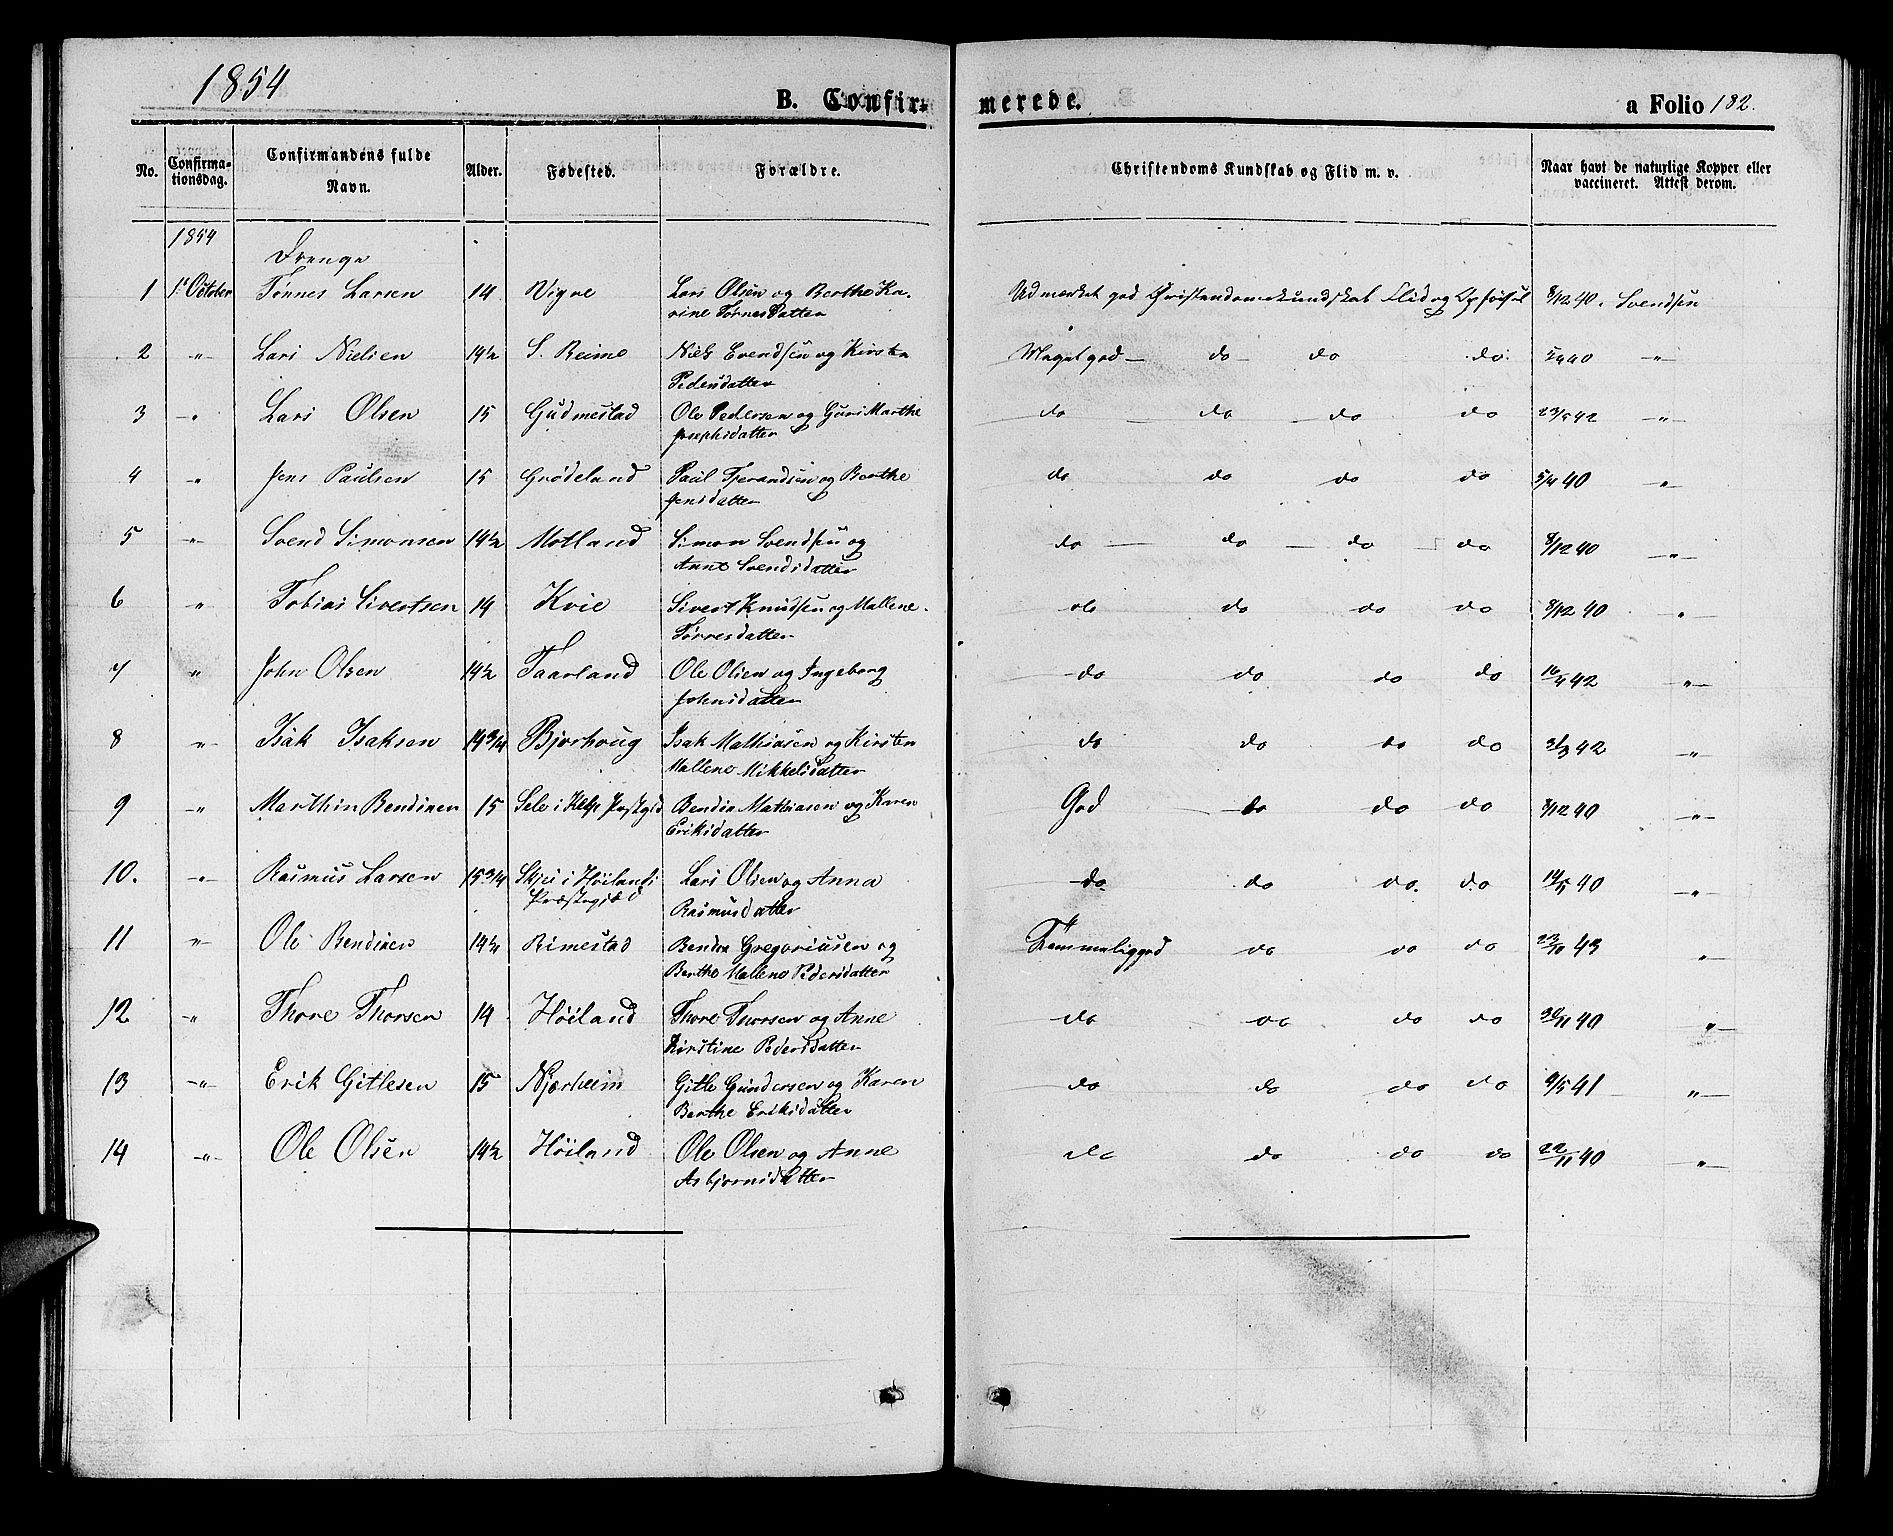 1854
B. Confir- merede. a Folio 182.
No. Confirma-tionsdag. Confirmandens fulde Navn. Alder. Fødested. Forældre. Christendoms Kundskab og Flid m. v. Naar havt de naturlige Kopper eller vaccineret. Attest derom.
1854
Drenge
1 1ste October Tønnes Larsen 14 Vigre Lars Olsen og Berthe Ka- Udmærket god Christendomskundskab Flid og Opførsel 8/12 40. Svendsen
rine Tørresdatter
2 " Lars Nielsen 14½ S. Reime Niels Svendsen og Kirsten Meget god do do do 40 "
Pedersdatter
3 " Lars Olsen 15 Gudmestad Ole Pedersen og Guri Marthe do do do do 23/5 42 "
Josephsdatter
4 " Jens Paulsen 15 Grødeland Paul Tjerandsen og Berthe do do do do 5/4 40 "
Jensdatter
5 " Svend Simonsen 14½ Motland Simon Svendsen og do do do do 8/12 40 "
Anne Svendsdatter
6 " Tobias Sivertsen 14 Kvie Sivert Knudsen og Mallene do do do do 8/12 40 "
Tørresdatter
7 " John Olsen 14½ Taarland Ole Olsen og Ingeborg do do do do 16/4 42 "
Johnsdatter
8 " Isak Isaksen 14¾ Bjorhoug Isak Mathiasen og Kirsten do do do do 31/3 42 "
Mallene Mikkelsdatter
9 " Marthin Bendixen 15 Sele i Klep Prstgjd Bendix Mathiasen og Karen God do do do 8/12 40 "
Eriksdatter
10. " Rasmus Larsen 15¾ Skjei i Høilands Lars Olsen og Anna do do do. do 40 "
Præstegjæld Rasmusdatter
11 " Ole Bendixen 14½ Rimestad Bendix Gregoriussen og Temmelig god do do do 43 "
Berthe Mallene Pedersdatter
12 " Thore Thorsen 14 Høiland Thore Thorsen og Anne do do do do 30/11 40 "
Kirstine Pedersdatter
13 " Erik Gitlesen 15 Njærheim Gitle Gundersen og Karen do do do do 4/5 41 "
Berthe Eriksdatter
14 " Ole Olsen 14½ Høiland Ole Olsen og Anne do do do do 22/11 40 "
Asbjørnsdatter